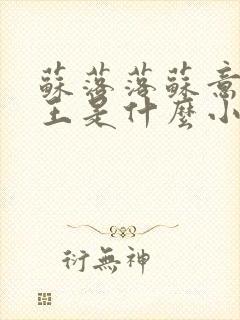 蘇落落蘇意
王是什麼小
衍無神